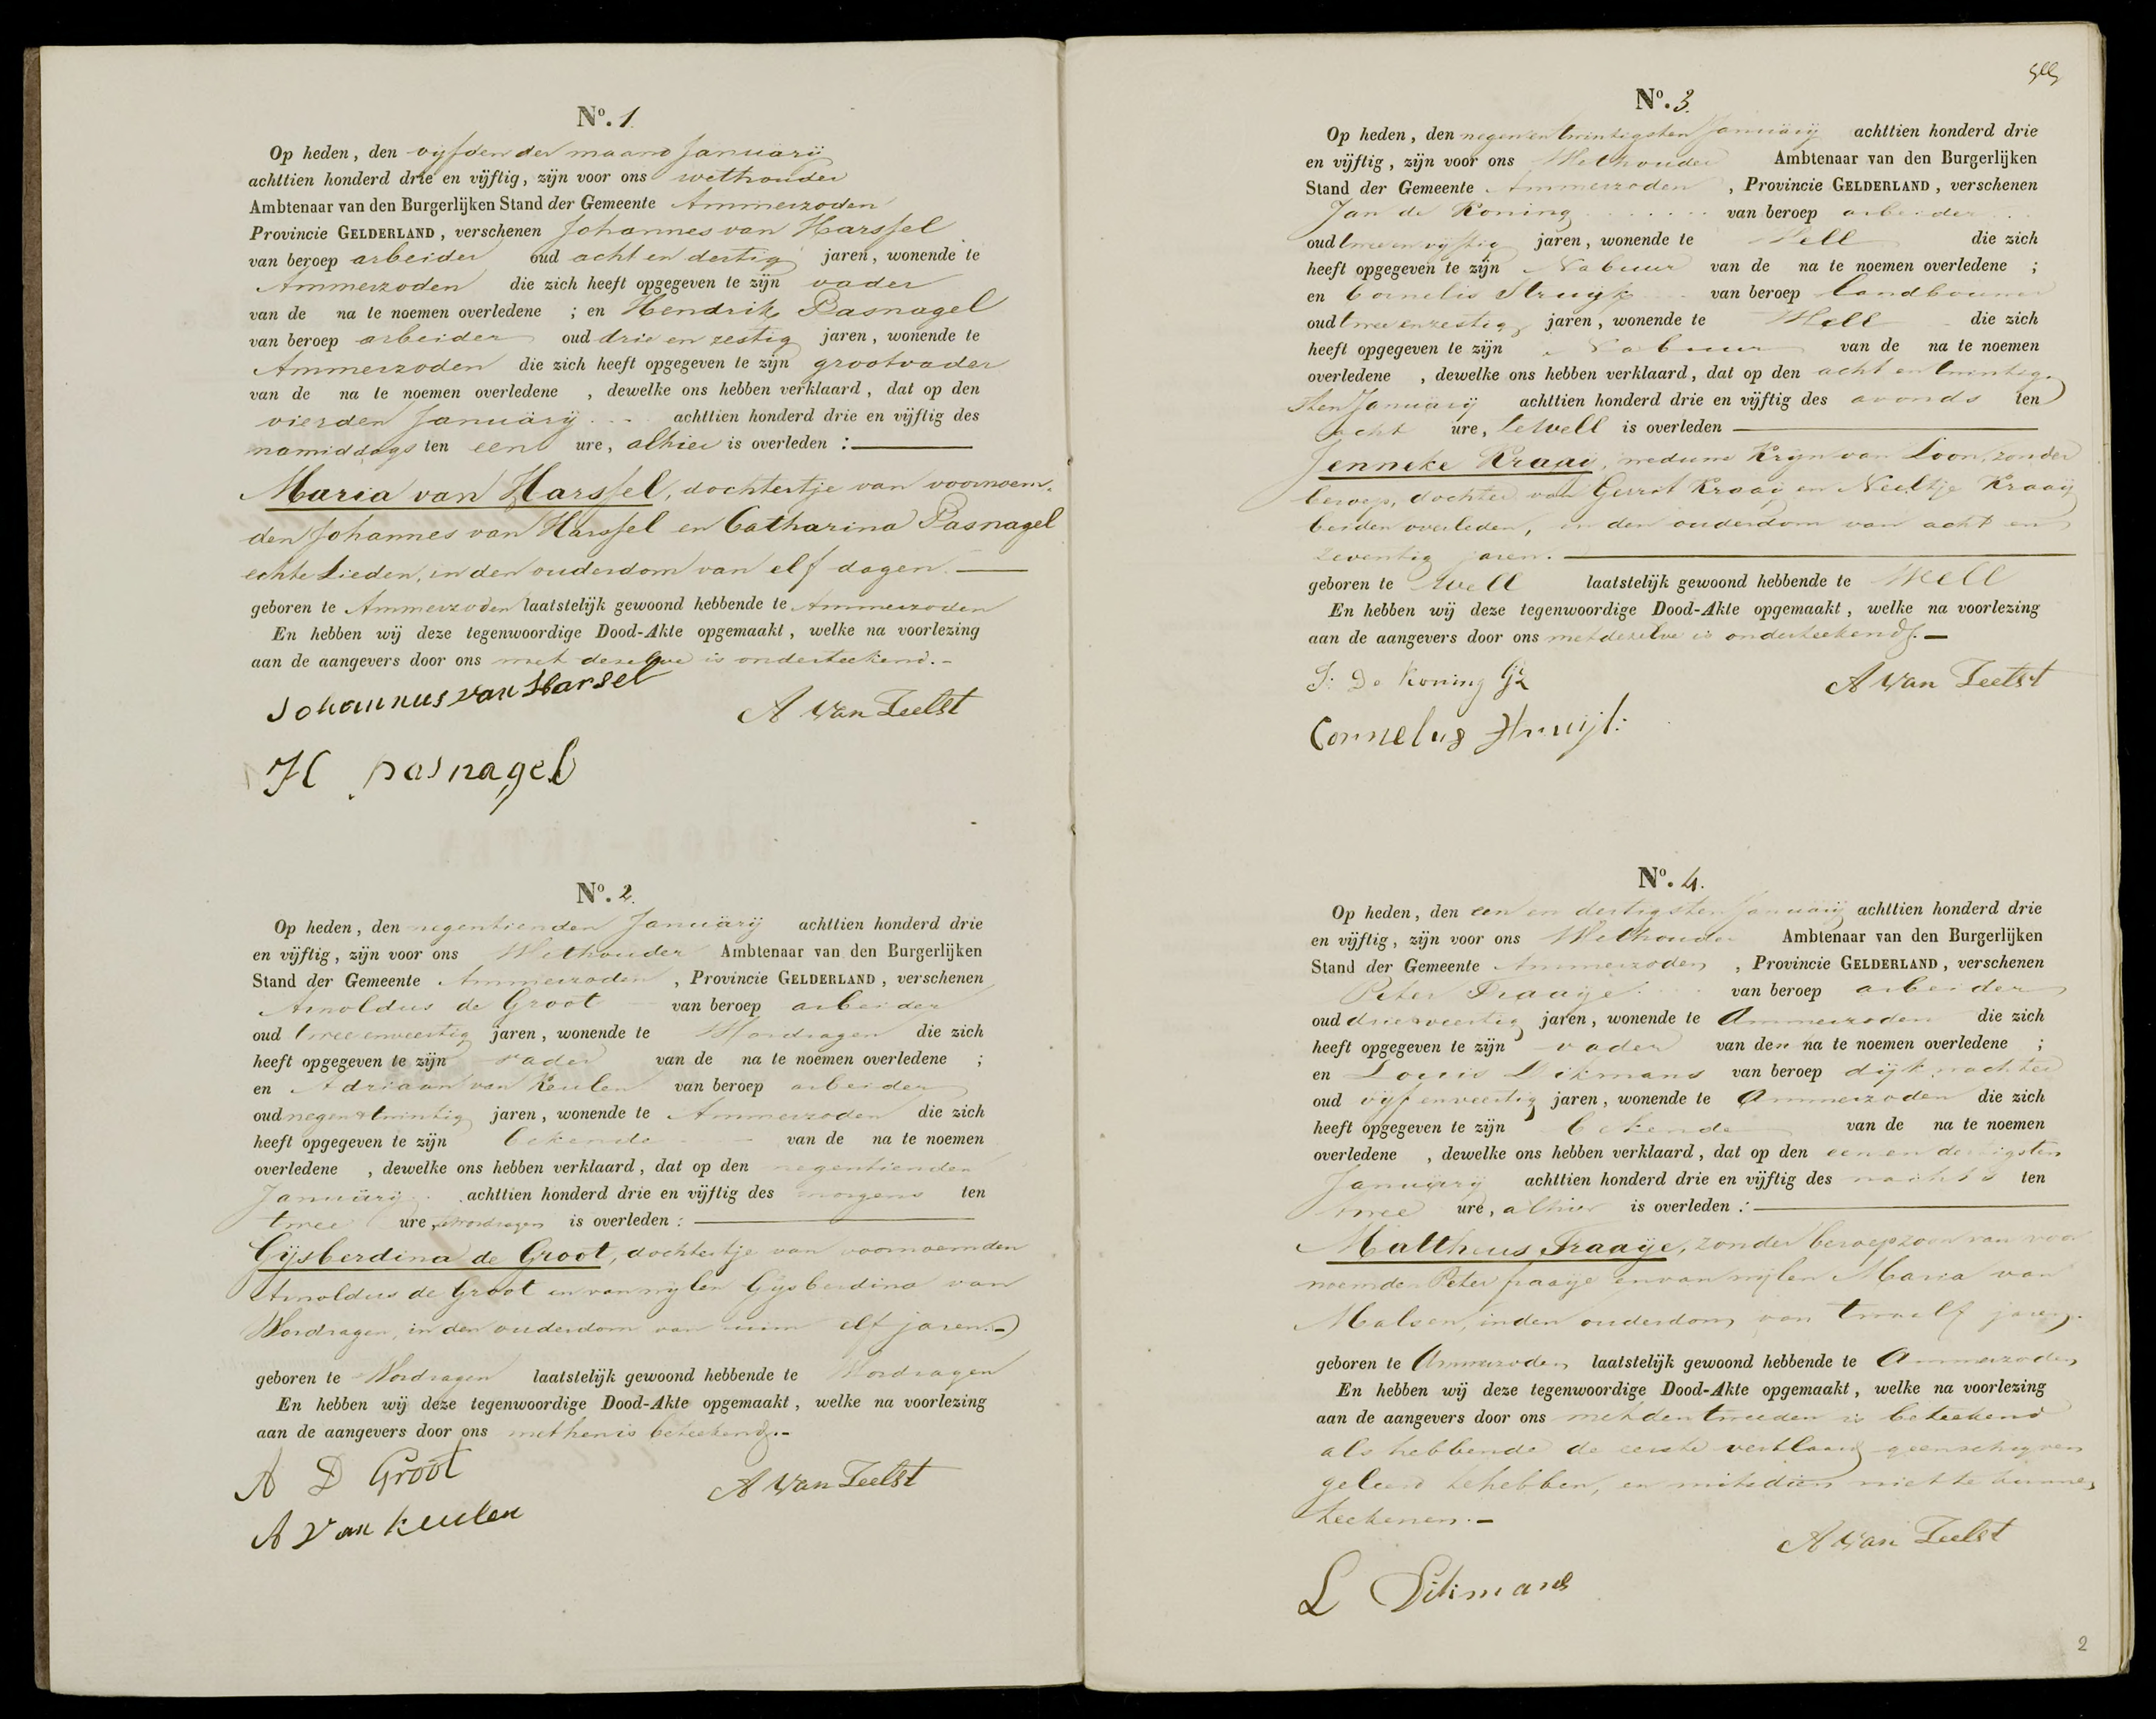 Nº. 1.
Op heden, den vyfden der maand Januärij
achttien honderd drie en vijftig, zijn voor ons wethouder
Ambtenaar van den Burgerlijken Stand der Gemeente Ammerzoden
Provincie GELDERLAND, verschenen Johannes van Harssel
van beroep arbeider oud acht en dertig jaren, wonende te
Ammerzoden die zich heeft opgegeven te zijn vader
van de na te noemen overledene ; en Hendrik Pasnagel
van beroep arbeider oud drie en zestig jaren, wonende te
Ammerzoden die zich heeft opgegeven te zijn grootvader
van de na te noemen overledene , dewelke ons hebben verklaard, dat op den
vierden Januärij achttien honderd drie en vijftig des
namiddags ten een ure, alhier is overleden :
Maria van Harssel, dochtertje van voornoem-
den Johannes van Harssel en Catharina Pasnagel
echte Lieden, in den ouderdom van elf dagen.
geboren te Ammerzoden laatstelijk gewoond hebbende te Ammerzoden
En hebben wij deze tegenwoordige Dood-Akte opgemaakt, welke na voorlezing
aan de aangevers door ons met dezelve is onderteekend.-
Johannus van Harsel
A van Teelst
H pasnagel
Nº. 2.
Op heden, den negentienden Januärij achttien honderd drie
en vijftig, zijn voor ons Wethouder Ambtenaar van den Burgerlijken
Stand der Gemeente Ammerzoden , Provincie GELDERLAND, verschenen
Arnoldus de Groot van beroep arbeider
oud twee enveertig jaren, wonende te Wordragen die zich
heeft opgegeven te zijn vader van de na te noemen overledene ;
en Adriaan van Keulen van beroep arbeider
oud negen & twintig jaren, wonende te Ammerzoden die zich
heeft opgegeven te zijn bekende van de na te noemen
overledene , dewelke ons hebben verklaard, dat op den negentienden
Januärij achttien honderd drie en vijftig des morgens ten
twee ure, te Wordragen is overleden :
Gijsberdina de Groot, dochtertje van voornoemden
Arnoldus de Groot en van wijlen Gijsberdina van
Wordragen, in den ouderdom van ruim elf jaren.-
geboren te Wordragen laatstelijk gewoond hebbende te Wordragen
En hebben wij deze tegenwoordige Dood-Akte opgemaakt, welke na voorlezing
aan de aangevers door ons met hen is beteekend.-
A D Groot
A van Teelst
A Van Keulen
Nº. 3.
Op heden, den negenentwintigsten Januärij achttien honderd drie
en vijftig, zijn voor ons Wethouder Ambtenaar van den Burgerlijken
Stand der Gemeente Ammerzoden , Provincie GELDERLAND, verschenen
Jan de Koning van beroep arbeider
oud twee en vijftig jaren, wonende te Well die zich
heeft opgegeven te zijn Nabuur van de na te noemen overledene ;
en Cornelis Struijk van beroep landbouwer
oud twee enzestig jaren, wonende te Well die zich
heeft opgegeven te zijn Nabuur van de na te noemen
overledene , dewelke ons hebben verklaard, dat op den acht en twintig-
sten Januärij achttien honderd drie en vijftig des avonds ten
acht ure, te Well is overleden
Jenneke Kraai, weduwe Krijn van Loon, zonder
beroep, dochter van Gerrit Kraaij en Neeltje Kraaij
beiden overleden, in den ouderdom van acht en
zeventig jaren.
geboren te Well laatstelijk gewoond hebbende te Well
En hebben wij deze tegenwoordige Dood-Akte opgemaakt, welke na voorlezing
aan de aangevers door ons met dezelve is onderteekend.-
J: De Koning Gz
A van Teelst
Cornelus Struijk
Nº. 4.
Op heden, den een en dertigsten Januärij achttien honderd drie
en vijftig, zijn voor ons Wethouder Ambtenaar van den Burgerlijken
Stand der Gemeente Ammerzoden , Provincie GELDERLAND, verschenen
Peter Fraaije van beroep arbeider
oud drie & veertig jaren, wonende te Ammerzoden die zich
heeft opgegeven te zijn vader van den na te noemen overledene ;
en Louis Dikmans van beroep dijkwachter
oud vijf enveertig jaren, wonende te Ammerzoden die zich
heeft opgegeven te zijn bekende van de na te noemen
overledene , dewelke ons hebben verklaard, dat op den een en dertigsten
Januärij achttien honderd drie en vijftig des nachts ten
twee ure, alhier is overleden :
Mattheus Fraaije, zonder beroep zoon van voor
noemden Peter fraaije en van wijlen Maria van
Malsen, in den ouderdom van twaalf jaren.
geboren te Ammerzoden laatstelijk gewoond hebbende te Ammerzoden
En hebben wij deze tegenwoordige Dood-Akte opgemaakt, welke na voorlezing
aan de aangevers door ons met den tweeden is beteekend
als hebbende de eerste verklaard geen schryven
geleerd te hebben, en mitsdien niet te kunnen
teekenen.-
A van Teelst
L Dikmans
2